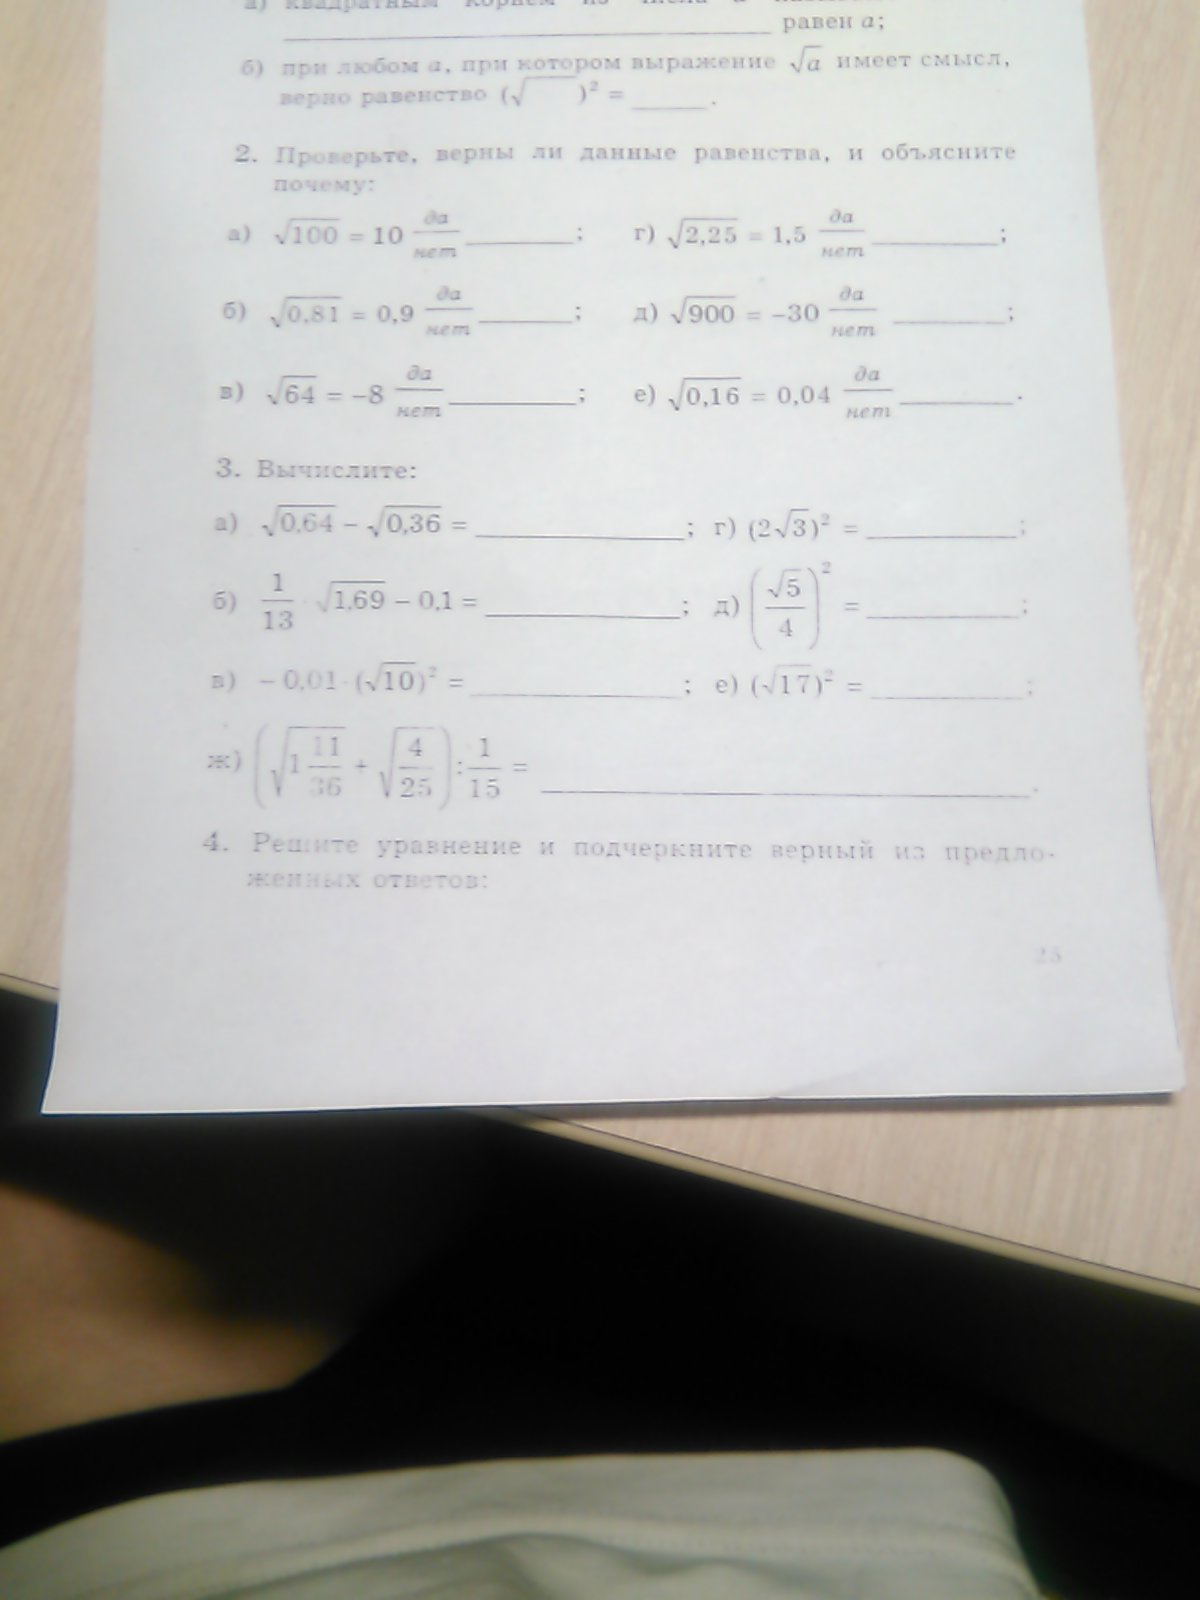 а) квадратным корнем из числа а
равен а;
б) при любом а, при котором выражение √a имеет смысл,
верно равенство (√ )² = ______ .
2. Проверьте, верны ли данные равенства, и объясните
почему:
а) √100 = 10 да/нет ________ ; г) √2,25 = 1,5 да/нет ________ ;
б) √0,81 = 0,9 да/нет ________ ; д) √900 = –30 да/нет ________ ;
в) √64 = –8 да/нет ________ ; е) √0,16 = 0,04 да/нет ________ .
3. Вычислите:
а) √0,64 – √0,36 = ________ ; г) (2√3)² = ________ ;
б) 1/13 · √1,69 – 0,1 = ________ ; д) (√5/4)² = ________ ;
в) – 0,01 · (√10)² = ________ ; е) (√17)² = ________ ;
ж) (√(1 11/36) + √(4/25)) : 1/15 = ________ .
4. Решите уравнение и подчеркните верный из предло-
женных ответов:
25